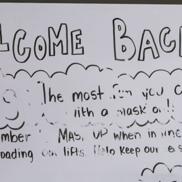 LCOME BACK
The most fun you c
with a mask on!
mber MASK UP when in line
oading our lifts. Help keep our